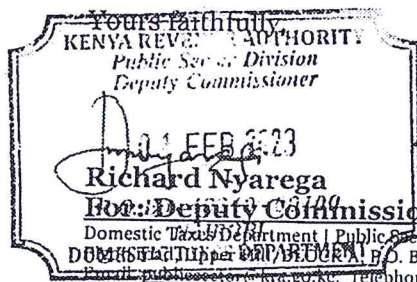 Yours faithfully,
KENYA REVENUE AUTHORITY
Public Sector Division
Deputy Commissioner
01 FEB 2023
Richard Nyarega
For: Deputy Commissio
Domestic Taxes Department | Public Sec
DOMESTIC DEPARTMENT
Upper Hill, BLOCK A, P.O. B
Email: publicsector@kra.go.ke, Telephon